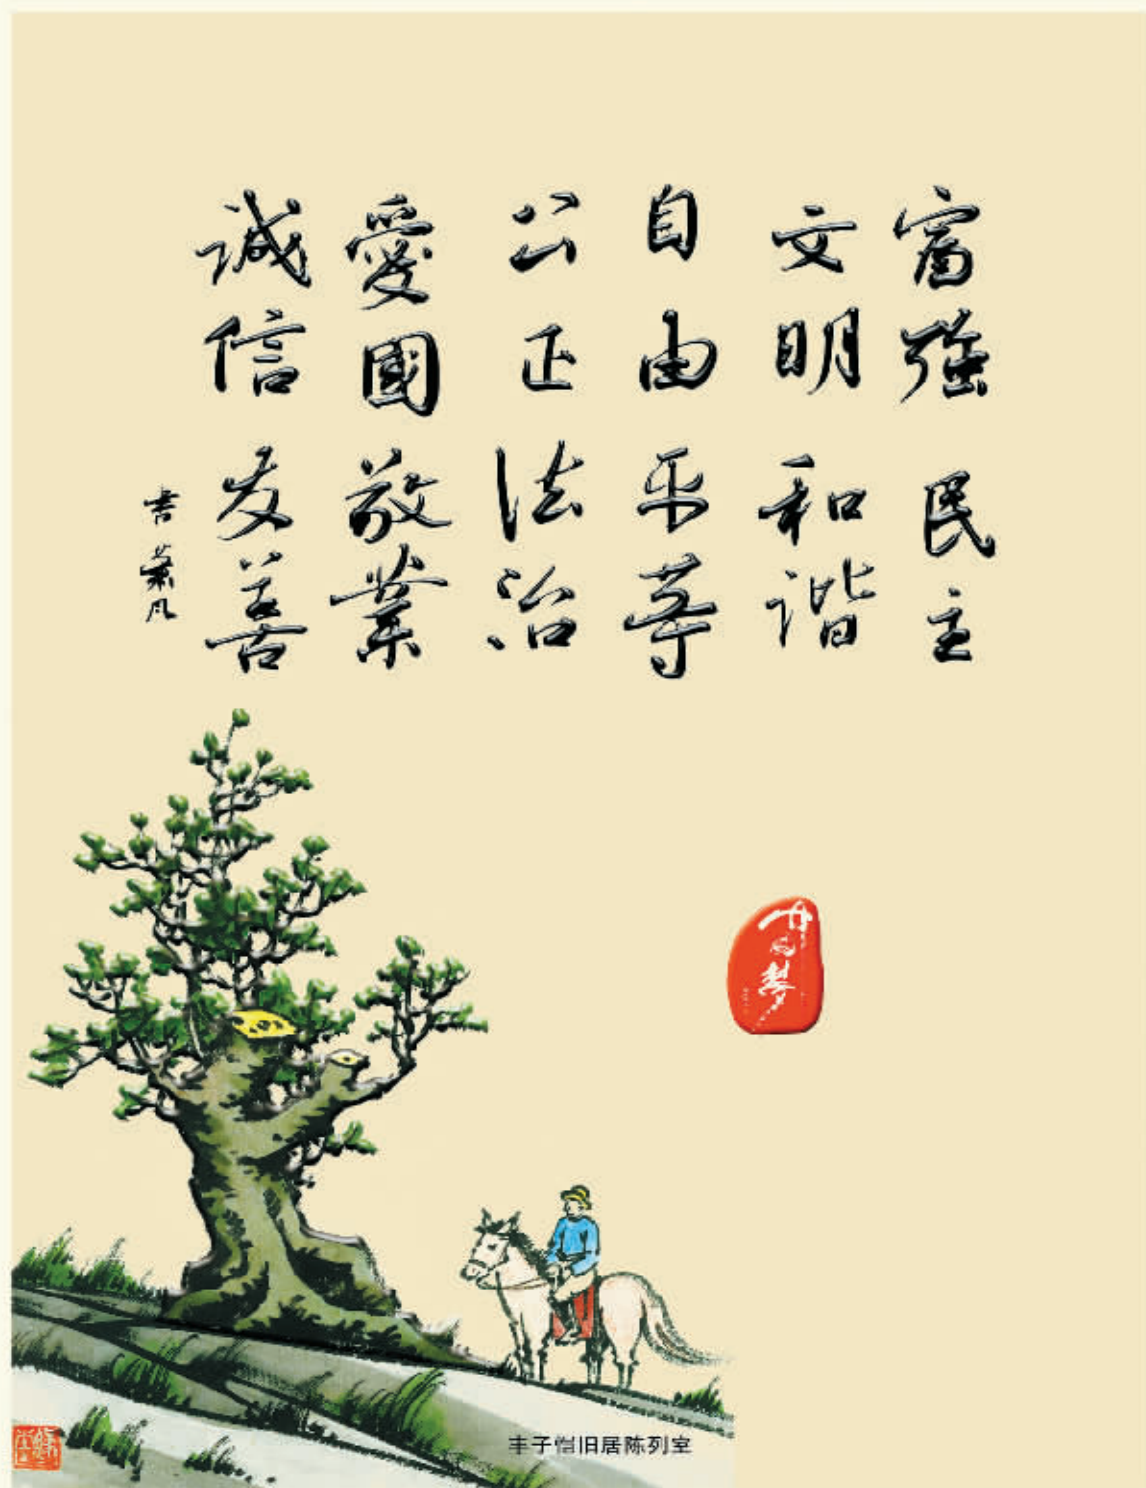 富强 民主
文明 和谐
自由 平等
公正 法治
愛國 敬業
诚信 友善
書 葉凡
中国梦
丰子恺旧居陈列室